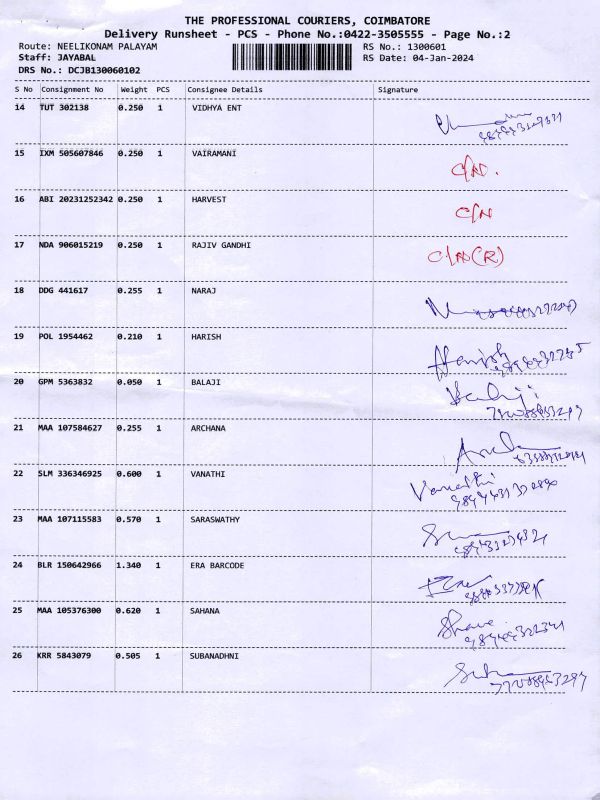 THE PROFESSIONAL COURIERS, COIMBATORE
Delivery Runsheet - PCS - Phone No.:0422-3505555 - Page No.:2
Route: NEELIKONAM PALAYAM RS No.: 1300601
Staff: JAYABAL RS Date: 04-Jan-2024
DRS No.: DCJB130060102
S No Consignment No Weight PCS Consignee Details Signature
14 TUT 302138 0.250 1 VIDHYA ENT
15 IXM 505607846 0.250 1 VAIRAMANI C/N.
16 ABI 20231252342 0.250 1 HARVEST C/N
17 NDA 906015219 0.250 1 RAJIV GANDHI C/N(R)
18 DDG 441617 0.255 1 NARAJ
19 POL 1954462 0.210 1 HARISH Harish
20 GPM 5363832 0.050 1 BALAJI Balaji
21 MAA 107584627 0.255 1 ARCHANA
22 SLM 336346925 0.600 1 VANATHI Vanathi
23 MAA 107115583 0.570 1 SARASWATHY
24 BLR 150642966 1.340 1 ERA BARCODE
25 MAA 105376300 0.620 1 SAHANA
26 KRR 5843079 0.505 1 SUBANADHNI